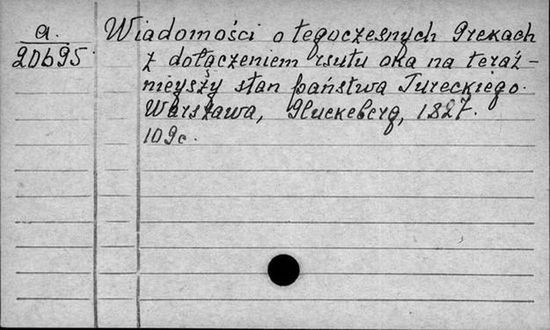 a.
20695.
Wiadomości o tegoczesnych Grekach
z dołączeniem rsutu oka na teraź-
nieyszy stan państwa Tureckiego.
Warszawa, Gluckeberg, 1827.
109c.